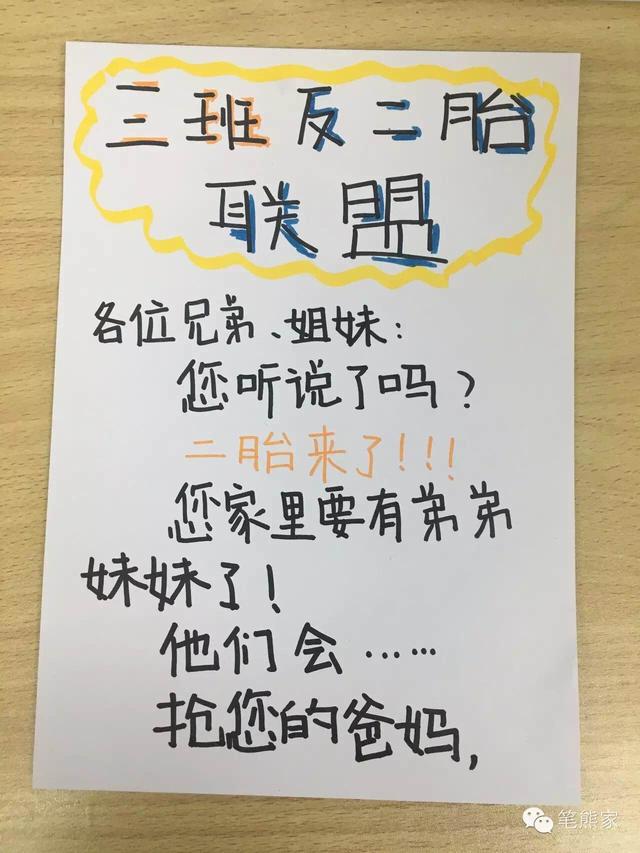 三班反二胎
联盟
各位兄弟、姐妹：
您听说了吗？
二胎来了！！！
您家里要有弟弟
妹妹了！
他们会……
抢您的爸妈，
笔熊家